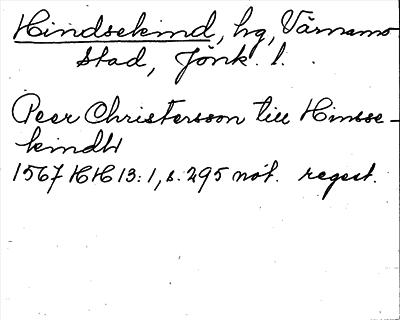 Hindsekind, hg, Värnamo
stad, Jönk. l.
Peer Christersson till Hinsse-
kindh
1567 HH 13:1, s. 295 not. regest.